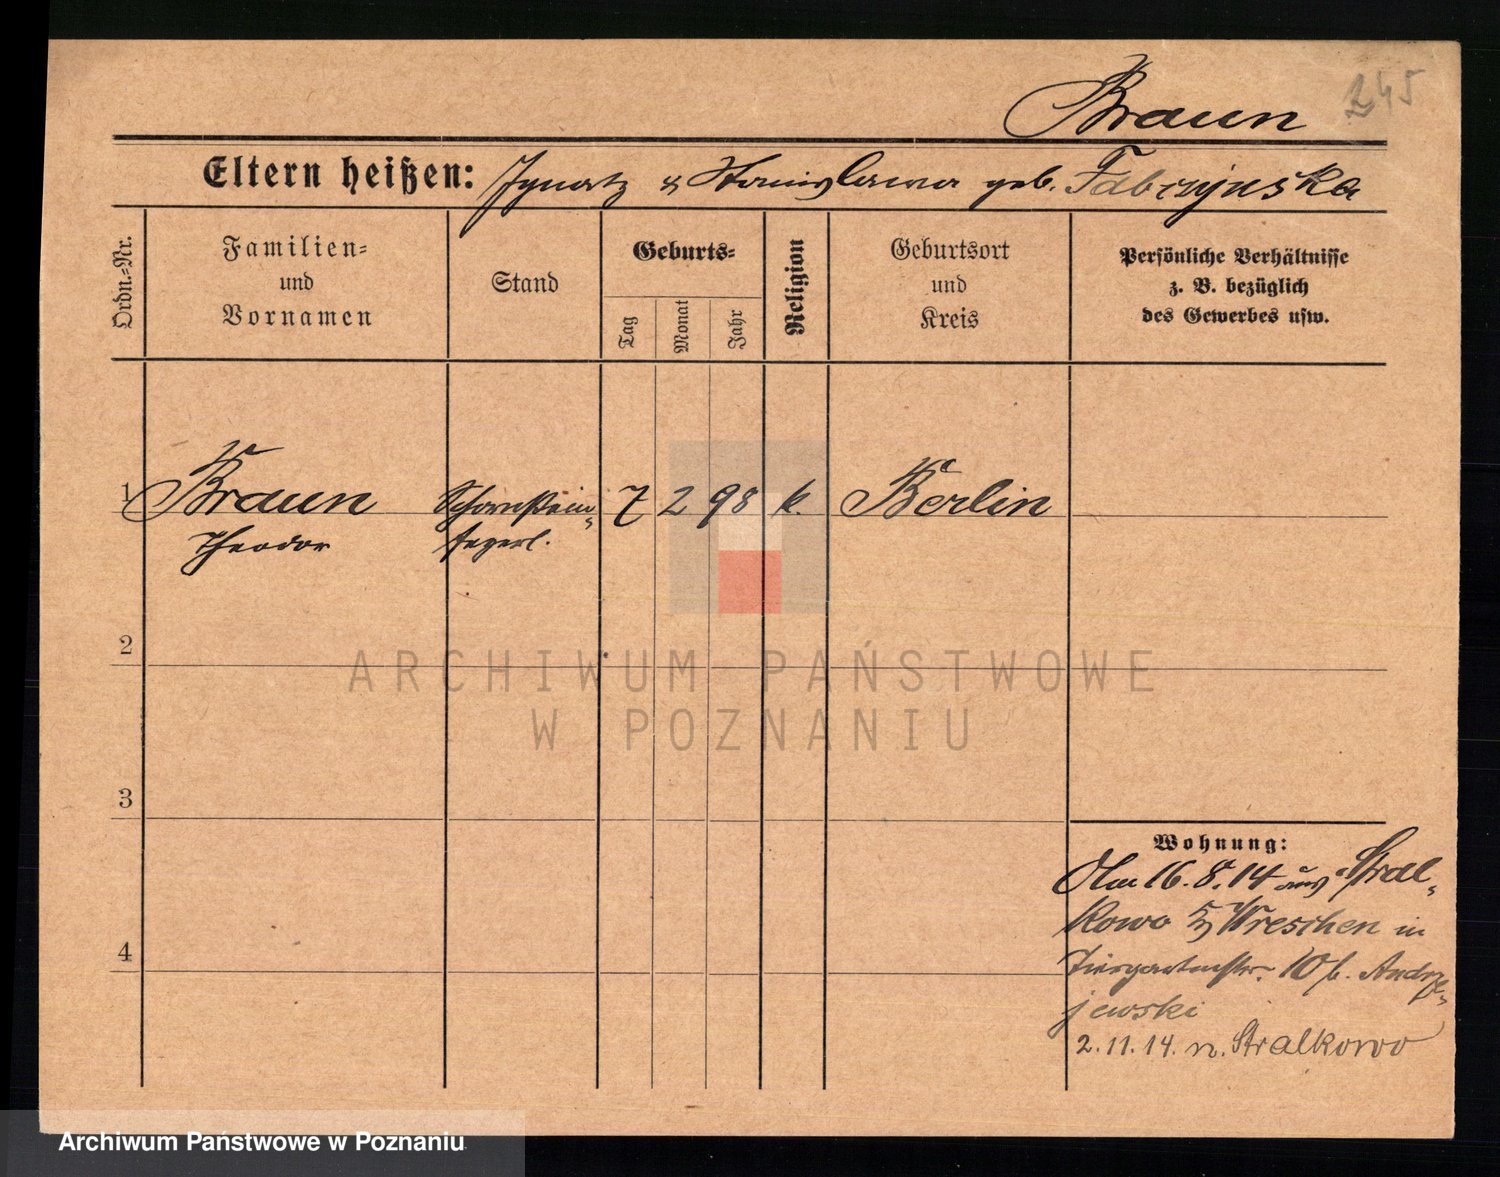 Braun
245
Eltern heißen: Ignatz & Stanislawa geb. Fabczynska
Ordn.=Nr.
Familien=
und
Vornamen
Stand
Geburts=
Tag
Monat
Jahr
Religion
Geburtsort
und
Kreis
Persönliche Verhältnisse
z. B. bezüglich
des Gewerbes usw.
1 Braun Schornstein= 7 2 98 k. Berlin
Theodor fegerl.
2
3
4
Wohnung:
Am 16.8.14 aus Stral=
kowo Wreschen in
Tiergartenstr. 10 b. Andrze=
jewski
2.11.14. n. Stralkowo
ARCHIWUM PAŃSTWOWE
W POZNANIU
Archiwum Państwowe w Poznaniu